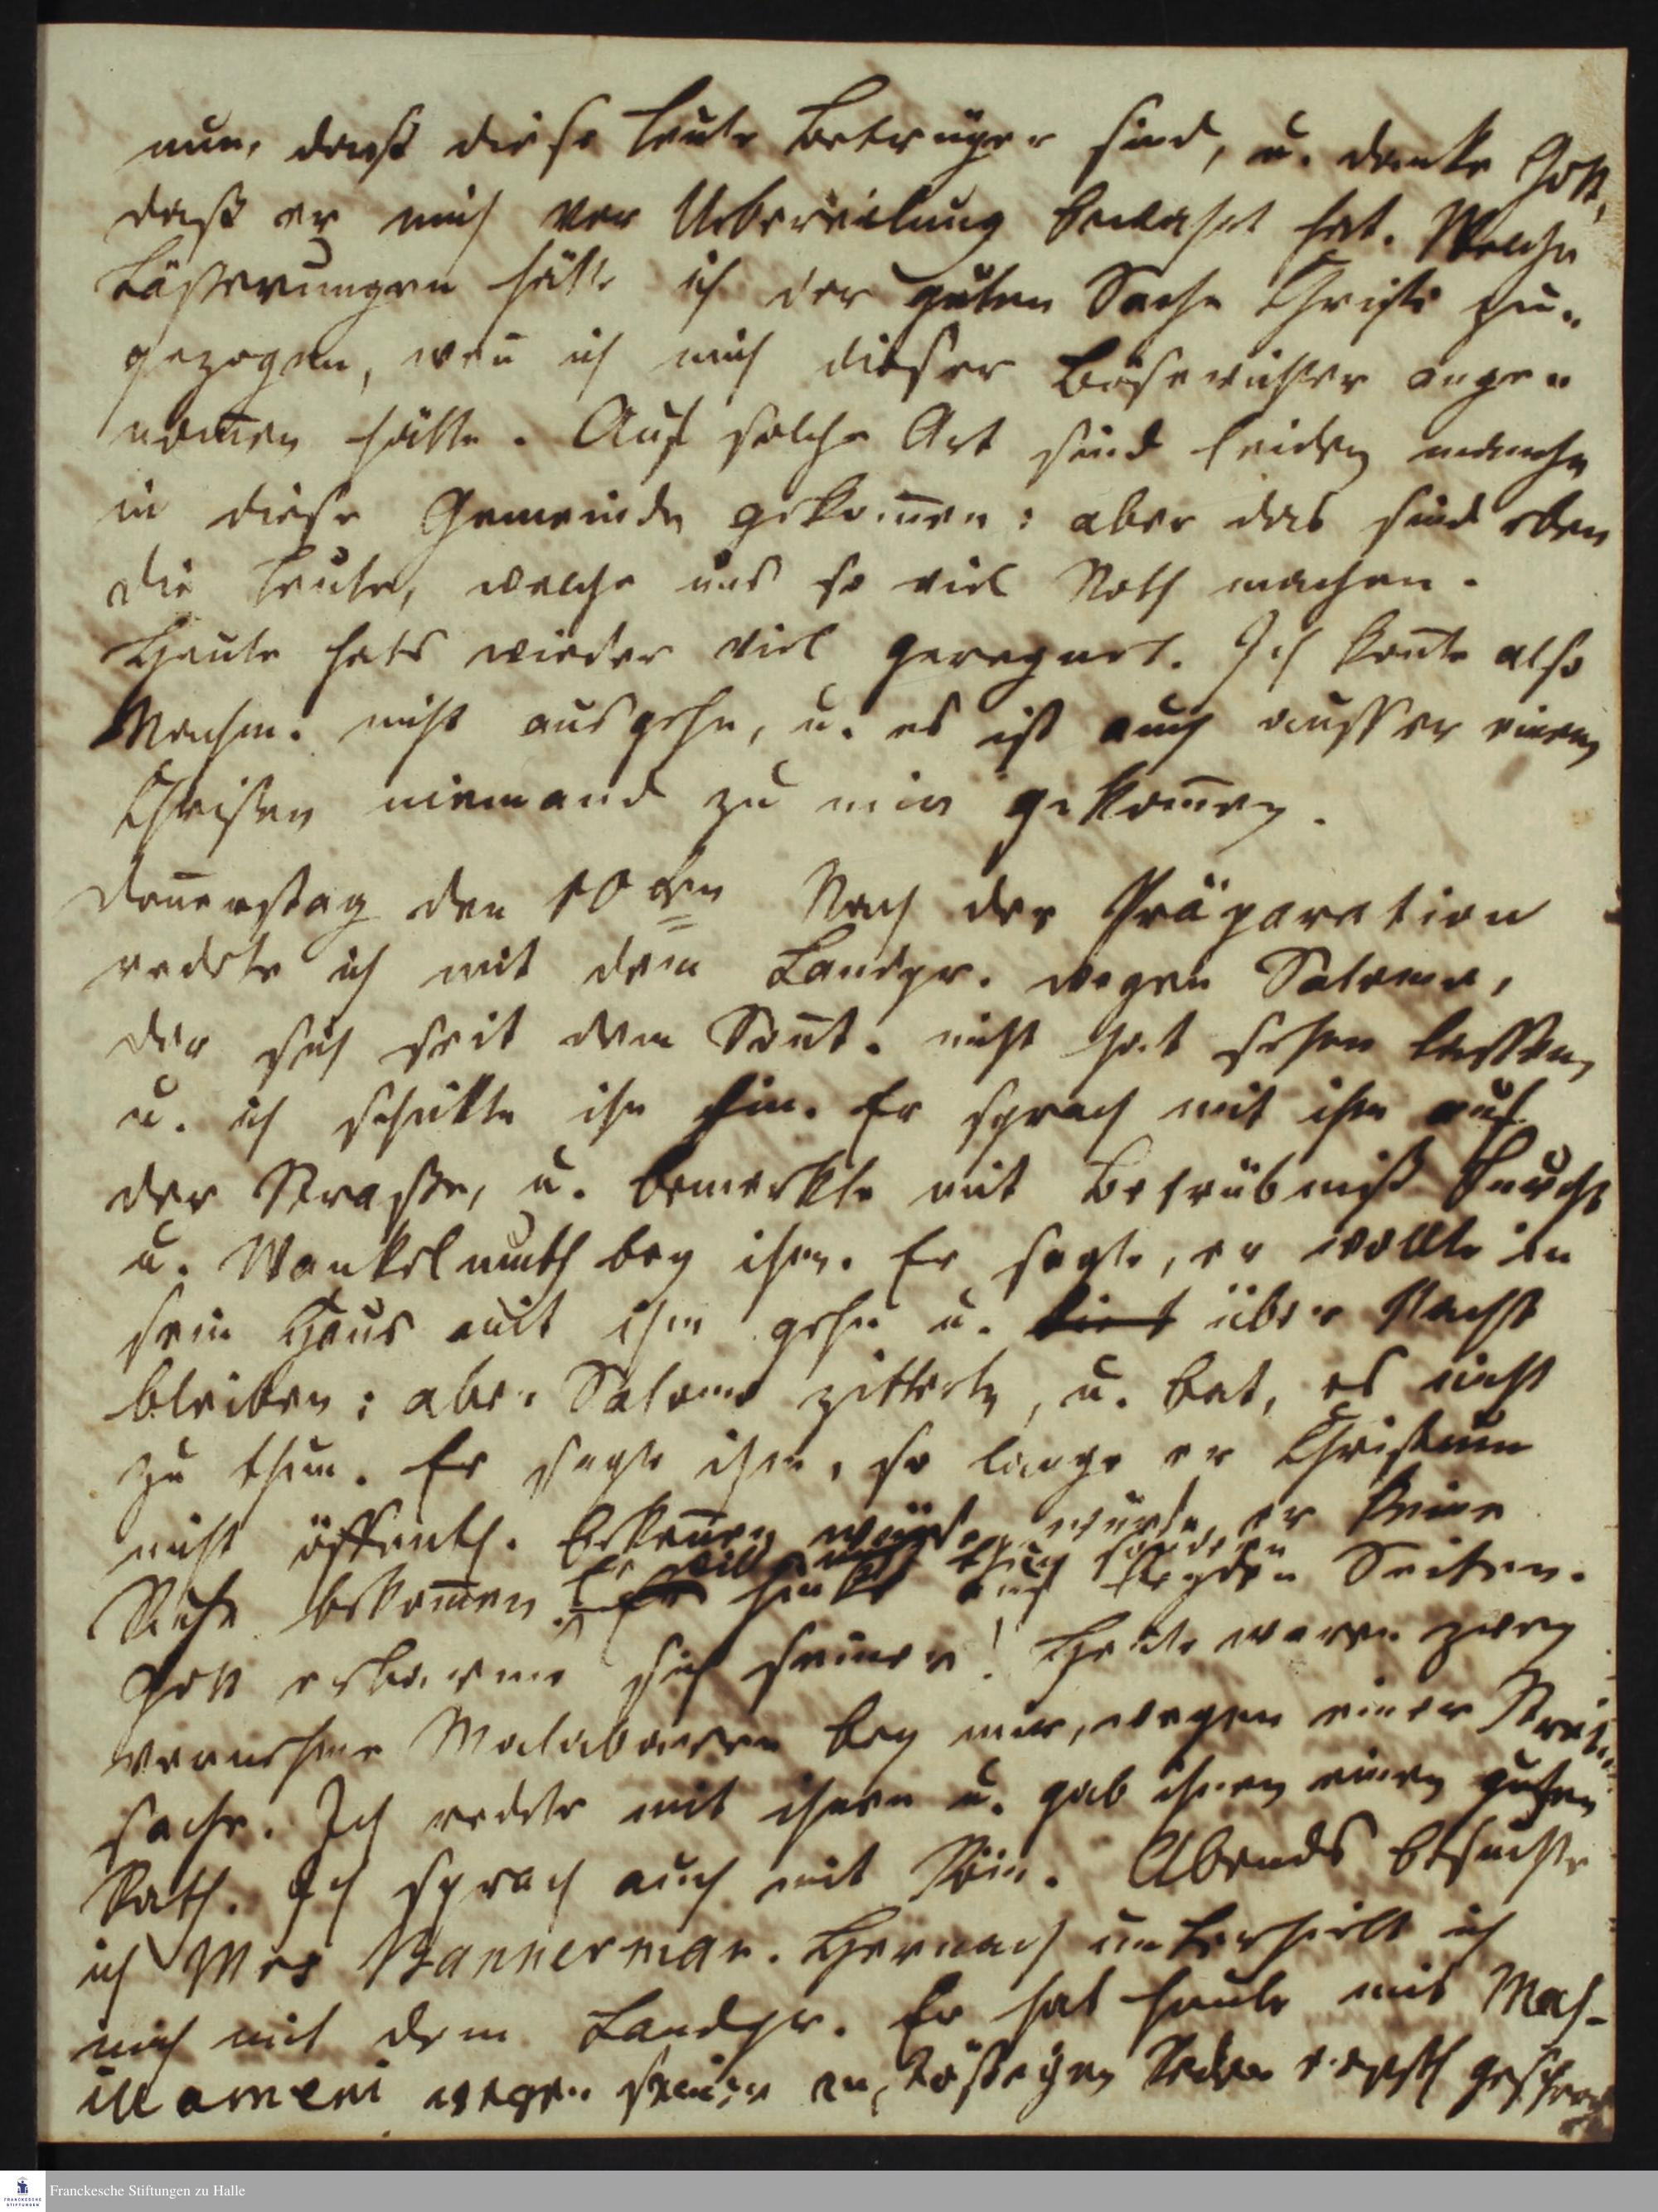 nun, daß diese Leute Betrüger sind, u. danke Gott,
daß er mich vor Uebereilung bewahrt hat. Welche
Lästerungen hätte ich der guten Sache Christi zu-
gezogen, weñ ich mich dieser Bösewichter ange-
nom̃en hätte. Auf solche Art sind leider manche
in diese Gemeinde gekom̃en: aber das sind eben
die Leute, welche uns so viel Noth machen.
Heute hats wieder viel geregnet. Ich koñte also
Nachm. nicht ausgehn, u. es ist auch ausser einem
Christen niemand zu mir gekom̃en.
Doñerstag den 10ten Nach der Präparation
redete ich mit dem Landpr. wegen Salomo,
der sich seit dem Soñt. nicht hat sehen lassen,
u. ich schikte ihn hin. Er sprach mit ihm auf
der Straße, u. bemerkte mit Betrübniß Furcht
u. Wankelmuth bey ihm. Er sagte, er wollte in
sein Haus mit ihm gehn u. über Nacht
bleiben: aber Salomo zitterte, u. bat, es nicht
zu thun. Er sagte ihm, so lange er Christum
nicht öffentl. bekeñen würde, würde er keine
Ruhe bekom̃en. Er hinkt auf beyden Seiten.
Gott erbarme sich seiner! Heute waren zwey
vornehme Malabaren bey mir, wegen einer Streit-
sache. Ich redete mit ihnen u. gab ihnen einen guten
Rath. Ich sprach auch mit Röm. Abends besuchte
ich Mrs Bannerman. Hernach unterhielt ich
mich mit dem Landpr. Er hat heute mit Mah-
wegen seiner anstößigen Reden ernstl gesproch
Franckesche Stiftungen zu Halle